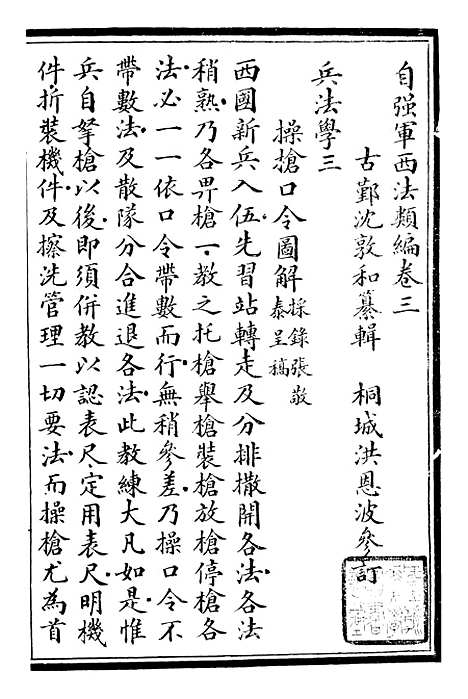 自强軍西法類編卷三
古鄞沈敦和纂輯　桐城洪恩波參訂
兵法學三
操搶口令圖解採錄張敬
泰呈稿
西國新兵入伍先習站轉走及分排撒開各法各法
稍熟乃各畀槍一教之托槍舉槍裝槍放槍停槍各
法必一一依口令帶數而行無稍參差乃操口令不
帶數法及散隊分合進退各法此教練大凡如是惟
兵自拏槍以後即須併教以認表尺定用表尺明機
件折裝機件及擦洗管理一切要法而操槍尤為首